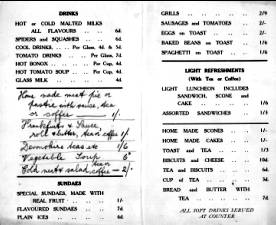 DRINKS
HOT or COLD MALTED MILKS
ALL FLAVOURS 6d.
SPIDERS and SQUASHES 6d.
COOL DRINKS, Per Glass, 4d. & 5d.
TOMATO DRINKS Per Glass, 7d.
HOT BONOX Per Cup, 4d.
HOT TOMATO SOUP Per Cup, 4d.
GLASS MILK 4d.
Home made meat pie or
pastie with sauce, tea
or coffee 1/-
Frankfurts & Sauce
roll & butter, tea or coffee 1/-
Devonshire teas etc 1/6
Vegetable Soup 6d
Cold meat salad, tea or coffee 2/-
SUNDAES
SPECIAL SUNDAES, MADE WITH
REAL FRUIT 1/-
FLAVOURED SUNDAES 7d.
PLAIN ICES 6d.
GRILLS 2/9
SAUSAGES and TOMATOES 2/-
EGGS on TOAST 2/-
BAKED BEANS on TOAST 1/6
SPAGHETTI on TOAST 1/6
LIGHT REFRESHMENTS
(With Tea or Coffee)
LIGHT LUNCHEON INCLUDES
SANDWICH, SCONE and
CAKE 1/6
ASSORTED SANDWICHES 1/3
HOME MADE SCONES 1/-
HOME MADE CAKES 1/-
TOAST and TEA 1/3
BISCUITS and CHEESE 10d.
TEA and BISCUITS 6d.
CUP of TEA 3d.
BREAD and BUTTER WITH
TEA 7d.
ALL SOFT DRINKS SERVED
AT COUNTER